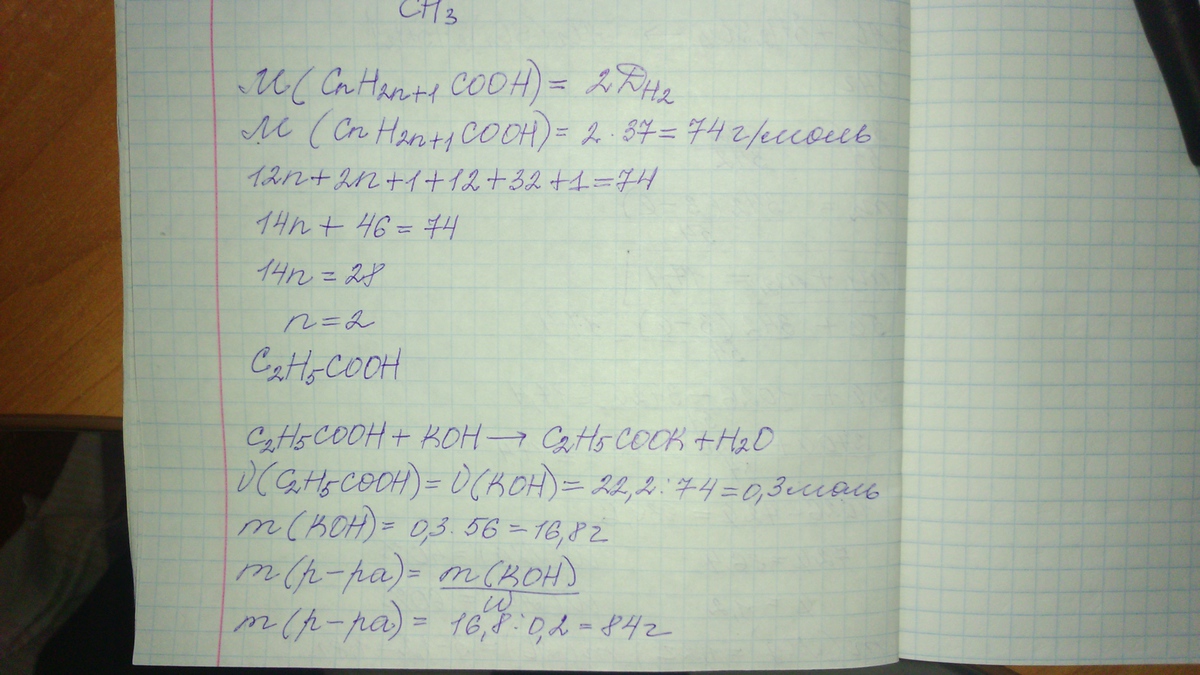 CH3
M(CnH2n+1COOH) = 2DH2
M(CnH2n+1COOH) = 2·37 = 74 г/моль
12n+2n+1+12+32+1=74
14n + 46 = 74
14n = 28
n = 2
C2H5COOH
C2H5COOH + KOH → C2H5COOK + H2O
ν(C2H5COOH) = ν(KOH) = 22,2:74 = 0,3 моль
m(KOH) = 0,3·56 = 16,8г
m(р-ра) = m(KOH)
w
m(р-ра) = 16,8:0,2 = 84г